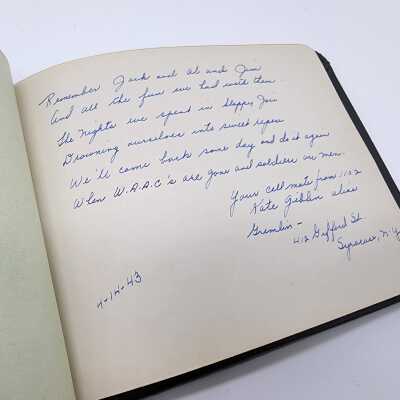 Remember Jack and Al and Jim
And all the fun we had with them.
The nights we spent in Sloppy Joe's
Drowning ourselves into sweet repose
We'll come back some day and do it again
When W.A.A.C's are gone and soldiers are men.
Your cellmate from 1102
Kate Geblin alias
Gremlin -
412 Gifford St.
Syracuse, N.Y
4-14-43